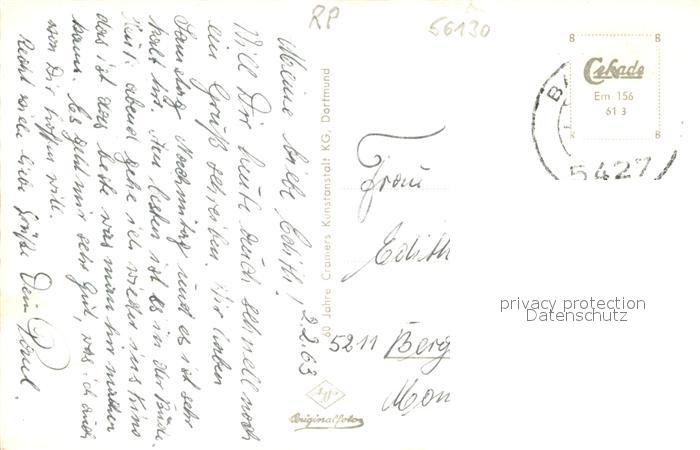 RP
56130
Meine liebe Edith! 2.2.63
Will Dir heute auch schnell noch
ein Gruß schreiben. Wir haben
Samstag Nachmittag und es ist sehr
kalt hir. Am besten ist es in der Bude.
Heute abend gehe ich wieder ins Kino
das ist das beste was man hir machen
kann. Es geht mir sehr gut, was ich auch
von Dir hoffen will.
Recht viele liebe Grüße Dein Paul.
60 Jahre Cramers Kunstanstalt KG, Dortmund
Agfa
Originalfoto
Cekade
Em 156
61 3
B
5427
Frau
Edith
5211 Berg
Mon
privacy protection
Datenschutz